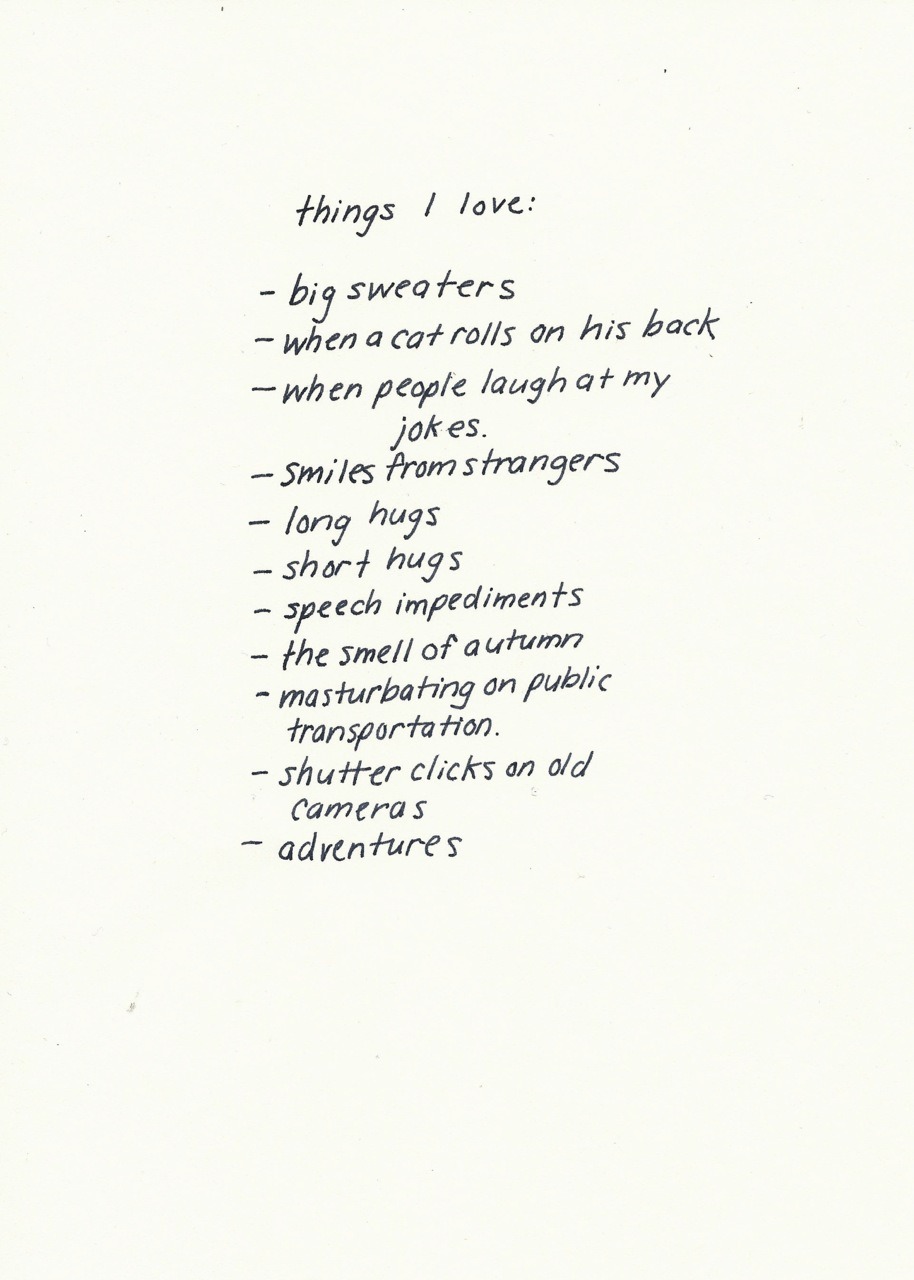 things I love:
- big sweaters
- when a cat rolls on his back
- when people laugh at my
jokes.
- smiles from strangers
- long hugs
- short hugs
- speech impediments
- the smell of autumn
- masturbating on public
transportation.
- shutter clicks on old
cameras
- adventures